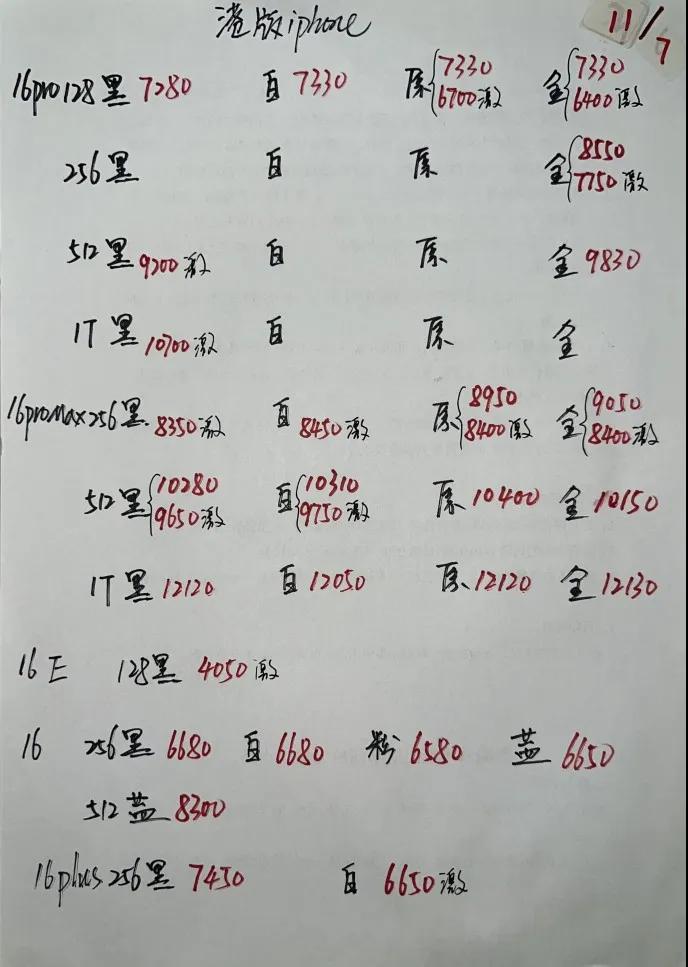 港版iphone 11/7
16pro128黑 7280 白 7330 原 7330 6700激 金 7330 6400激
256黑 白 原 金 8550 7750激
512黑 9200激 白 原 金 9830
1T黑 10700激 白 原 金
16promax256黑 8350激 白 8450激 原 8950 8400激 金 9050 8400激
512黑 10280 9650激 白 10310 9750激 原 10400 金 10150
1T黑 12120 白 12050 原 12120 金 12130
16E 128黑 4050激
16 256黑 6680 白 6680 粉 6580 蓝 6650
512蓝 8300
16plus256黑 7450 白 6650激